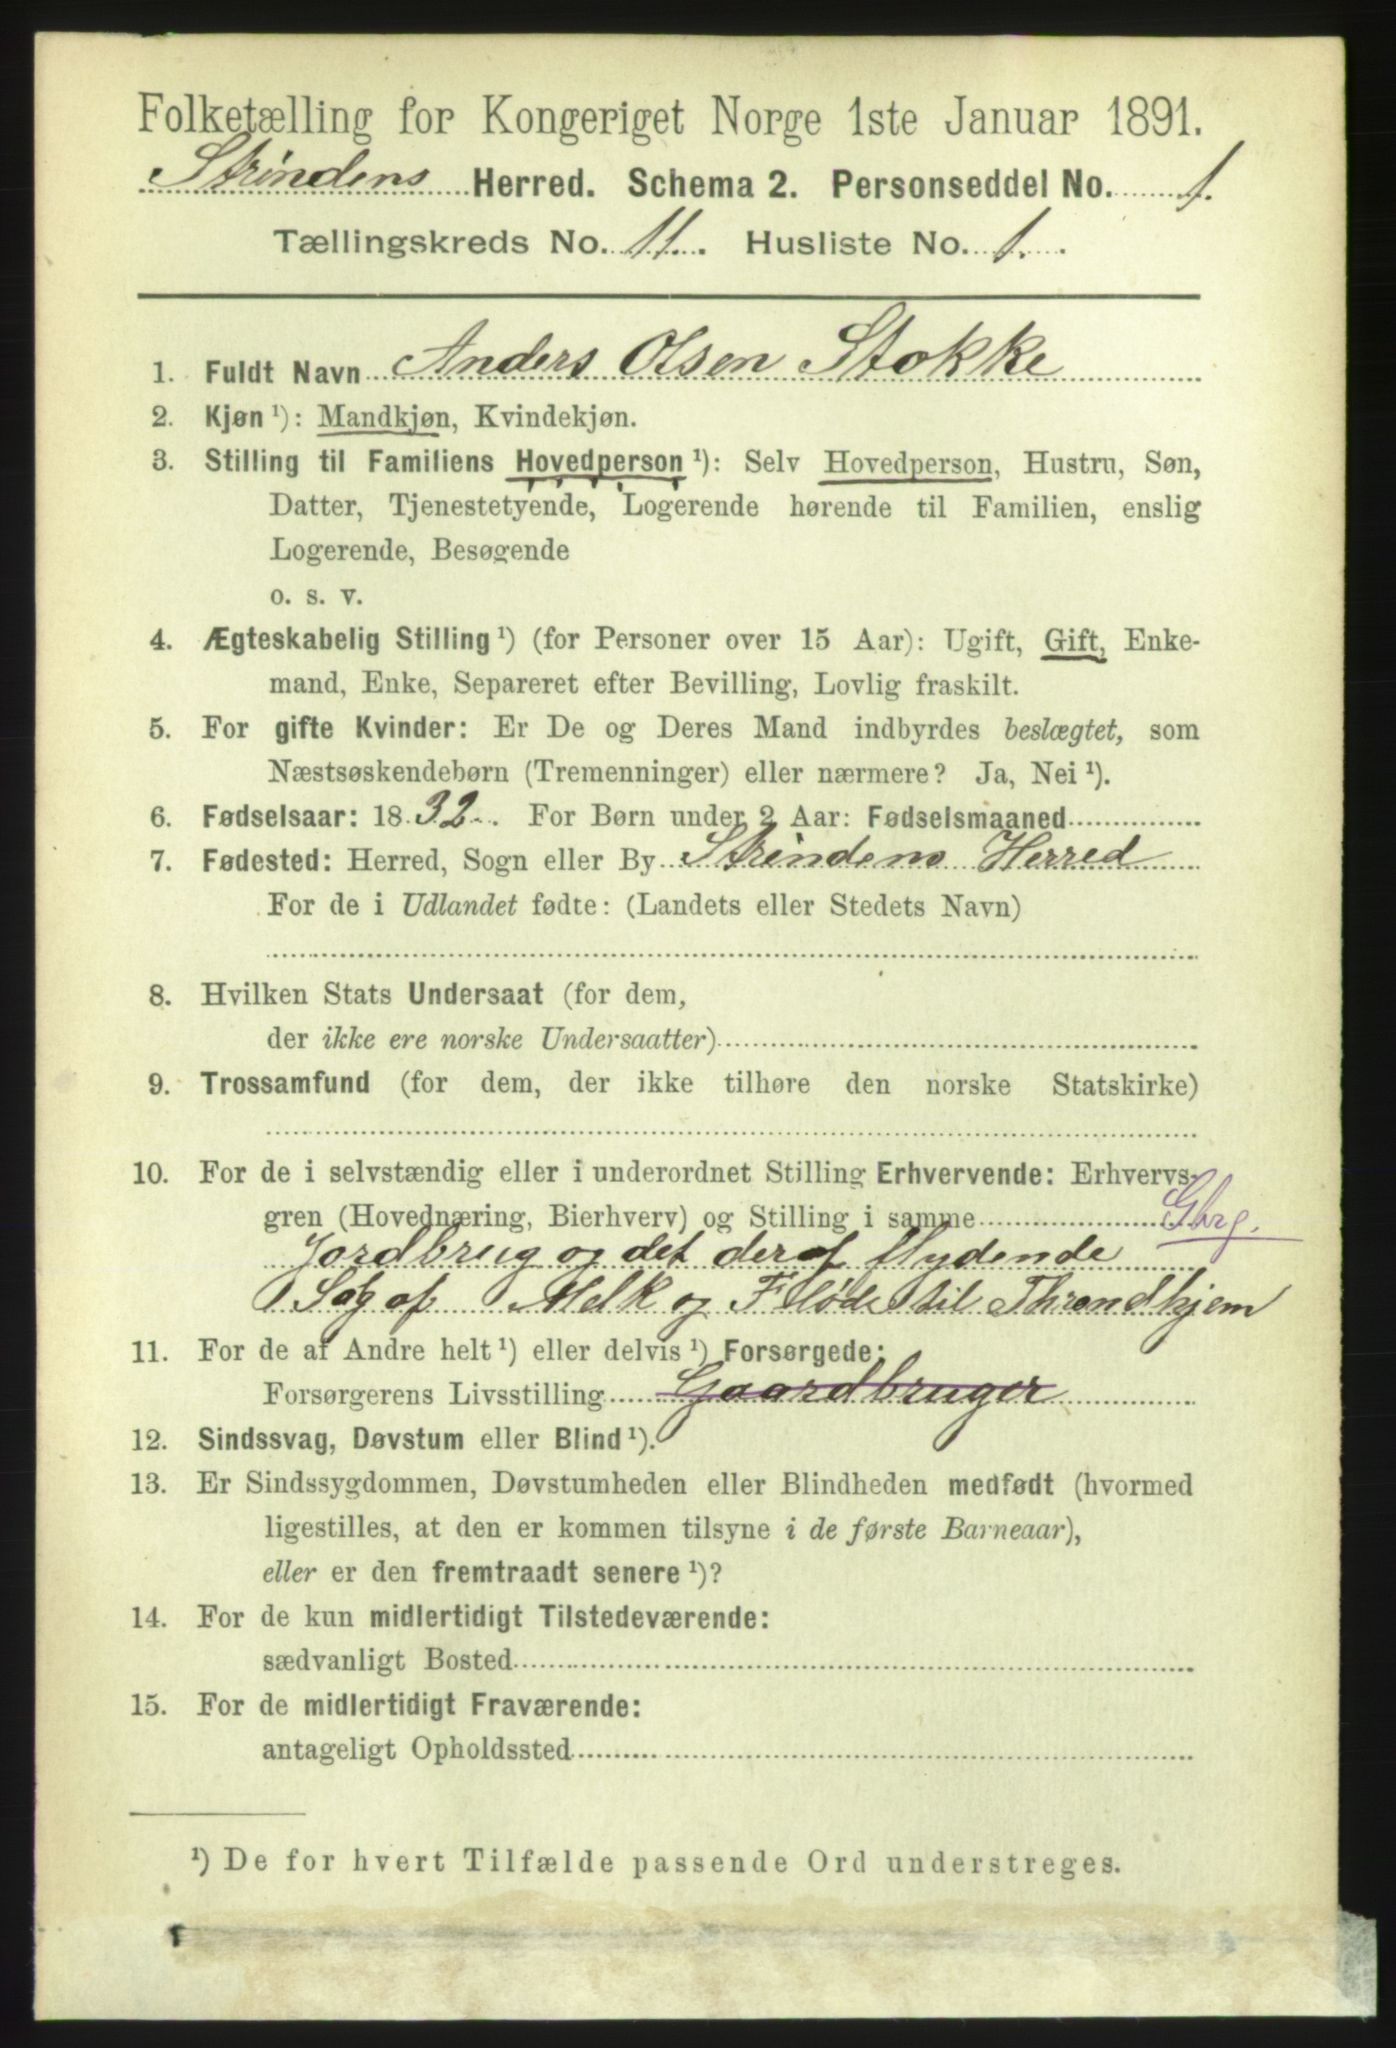 Folketælling for Kongeriget Norge 1ste Januar 1891.
Strindens Herred. Schema 2. Personseddel No. 1.
Tællingskreds No. 11. Husliste No. 1.
1. Fuldt Navn Anders Olsen Stokke
2. Kjøn ¹): Mandkjøn, Kvindekjøn.
3. Stilling til Familiens Hovedperson ¹): Selv Hovedperson, Hustru, Søn,
Datter, Tjenestetyende, Logerende hørende til Familien, enslig
Logerende, Besøgende
o. s. v.
4. Ægteskabelig Stilling ¹) (for Personer over 15 Aar): Ugift, Gift, Enke-
mand, Enke, Separeret efter Bevilling, Lovlig fraskilt.
5. For gifte Kvinder: Er De og Deres Mand indbyrdes beslægtet, som
Næstsøskendebørn (Tremenninger) eller nærmere? Ja, Nei ¹).
6. Fødselsaar: 1832. For Børn under 2 Aar: Fødselsmaaned
7. Fødested: Herred, Sogn eller By Strindens Herred
For de i Udlandet fødte: (Landets eller Stedets Navn)
8. Hvilken Stats Undersaat (for dem,
der ikke ere norske Undersaatter)
9. Trossamfund (for dem, der ikke tilhøre den norske Statskirke)
10. For de i selvstændig eller i underordnet Stilling Erhvervende: Erhvervs-
gren (Hovednæring, Bierhverv) og Stilling i samme Gbrg.
Jordbrug og det deraf flydende
Salg af Melk og Fløde til Throndhjem
11. For de af Andre helt ¹) eller delvis ¹) Forsørgede:
Forsørgerens Livsstilling Gaardbruger
12. Sindssvag, Døvstum eller Blind ¹).
13. Er Sindssygdommen, Døvstumheden eller Blindheden medfødt (hvormed
ligestilles, at den er kommen tilsyne i de første Barneaar),
eller er den fremtraadt senere ¹)?
14. For de kun midlertidigt Tilstedeværende:
sædvanligt Bosted
15. For de midlertidigt Fraværende:
antageligt Opholdssted
¹) De for hvert Tilfælde passende Ord understreges.